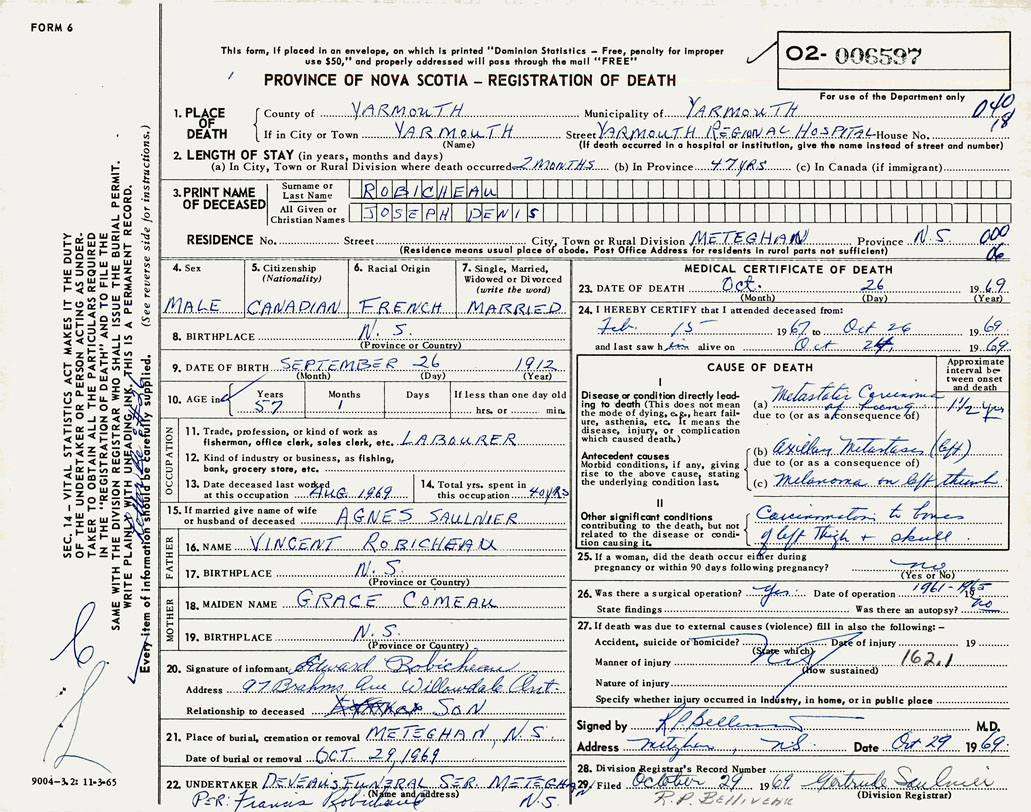 FORM 6
This form, if placed in an envelope, on which is printed "Dominion Statistics – Free, penalty for improper
use $50," and properly addressed will pass through the mail "FREE"
02- 006597
For use of the Department only
PROVINCE OF NOVA SCOTIA – REGISTRATION OF DEATH
040
18
1. PLACE OF DEATH
County of YARMOUTH Municipality of YARMOUTH
If in City or Town YARMOUTH Street YARMOUTH REGIONAL HOSPITAL House No.
(Name) (If death occurred in a hospital or institution, give the name instead of street and number)
2. LENGTH OF STAY (in years, months and days)
(a) In City, Town or Rural Division where death occurred 2 MONTHS (b) In Province 47 YRS (c) In Canada (if immigrant)
3. PRINT NAME OF DECEASED
Surname or Last Name ROBICHEAU
All Given or Christian Names JOSEPH DENIS
RESIDENCE No. Street City, Town or Rural Division METEGHAN Province N.S. 000
06
(Residence means usual place of abode. Post Office Address for residents in rural parts not sufficient)
4. Sex 5. Citizenship (Nationality) 6. Racial Origin 7. Single, Married, Widowed or Divorced (write the word)
MALE CANADIAN FRENCH MARRIED
8. BIRTHPLACE N.S.
(Province or Country)
9. DATE OF BIRTH SEPTEMBER 26 1912
(Month) (Day) (Year)
10. AGE in Years Months Days If less than one day old
57 1 hrs. or min.
OCCUPATION
11. Trade, profession, or kind of work as
fisherman, office clerk, sales clerk, etc. LABOURER
12. Kind of industry or business, as fishing,
bank, grocery store, etc.
13. Date deceased last worked
at this occupation AUG 1969
14. Total yrs. spent in
this occupation 40 YRS
15. If married give name of wife
or husband of deceased AGNES SAULNIER
FATHER
16. NAME VINCENT ROBICHEAU
17. BIRTHPLACE N.S.
(Province or Country)
MOTHER
18. MAIDEN NAME GRACE COMEAU
19. BIRTHPLACE N.S.
(Province or Country)
20. Signature of informant Edward Robicheau
Address 97 Brahms Ave Willowdale Ont.
Relationship to deceased SON
21. Place of burial, cremation or removal METEGHAN, N.S.
Date of burial or removal OCT. 29, 1969
22. UNDERTAKER DEVEAU'S FUNERAL SER. METEGHAN
(Name and address)
PER: Francis Robichaud N.S.
MEDICAL CERTIFICATE OF DEATH
23. DATE OF DEATH Oct. 26 1969
(Month) (Day) (Year)
24. I HEREBY CERTIFY that I attended deceased from:
Feb 15 1967 to Oct 26 1969
and last saw him alive on Oct 24, 1969
CAUSE OF DEATH
Approximate interval between onset and death
I
Disease or condition directly leading
to death (This does not mean
the mode of dying, e.g., heart failure,
asthenia, etc. It means the
disease, injury, or complication
which caused death.)
(a) Metastatic Carcinoma
of lung 1½ yrs
due to (or as a consequence of)
Antecedent causes
Morbid conditions, if any, giving
rise to the above cause, stating
the underlying condition last.
(b) Axillary Metastases (left)
due to (or as a consequence of)
(c) Melanoma on left thumb
II
Other significant conditions
contributing to the death, but not
related to the disease or condition
causing it.
to bones
of left thigh + skull.
25. If a woman, did the death occur either during
pregnancy or within 90 days following pregnancy? no
(Yes or No)
26. Was there a surgical operation? yes. Date of operation 1961-1965 19
State findings Was there an autopsy? no
27. If death was due to external causes (violence) fill in also the following: –
Accident, suicide or homicide? Date of injury 19
(State which)
Manner of injury 162.1
(How sustained)
Nature of injury
Specify whether injury occurred in industry, in home, or in public place
Signed by M.D.
Address N.S. Date Oct 29 1969
28. Division Registrar's Record Number
29. Filed October 29 1969 Gertrude Saulnier
(Division Registrar)
R.P. BELLIVEAU
SEC. 14 – VITAL STATISTICS ACT MAKES IT THE DUTY
OF THE UNDERTAKER OR PERSON ACTING AS UNDERTAKER
TO OBTAIN ALL THE PARTICULARS REQUIRED
IN THE "REGISTRATION OF DEATH" AND TO FILE THE
SAME WITH THE DIVISION REGISTRAR WHO SHALL ISSUE THE BURIAL PERMIT.
WRITE PLAINLY WITH UNFADING INK. THIS IS A PERMANENT RECORD.
Every item of information should be carefully supplied. (See reverse side for instructions.)
9004-3.2: 11-3-65